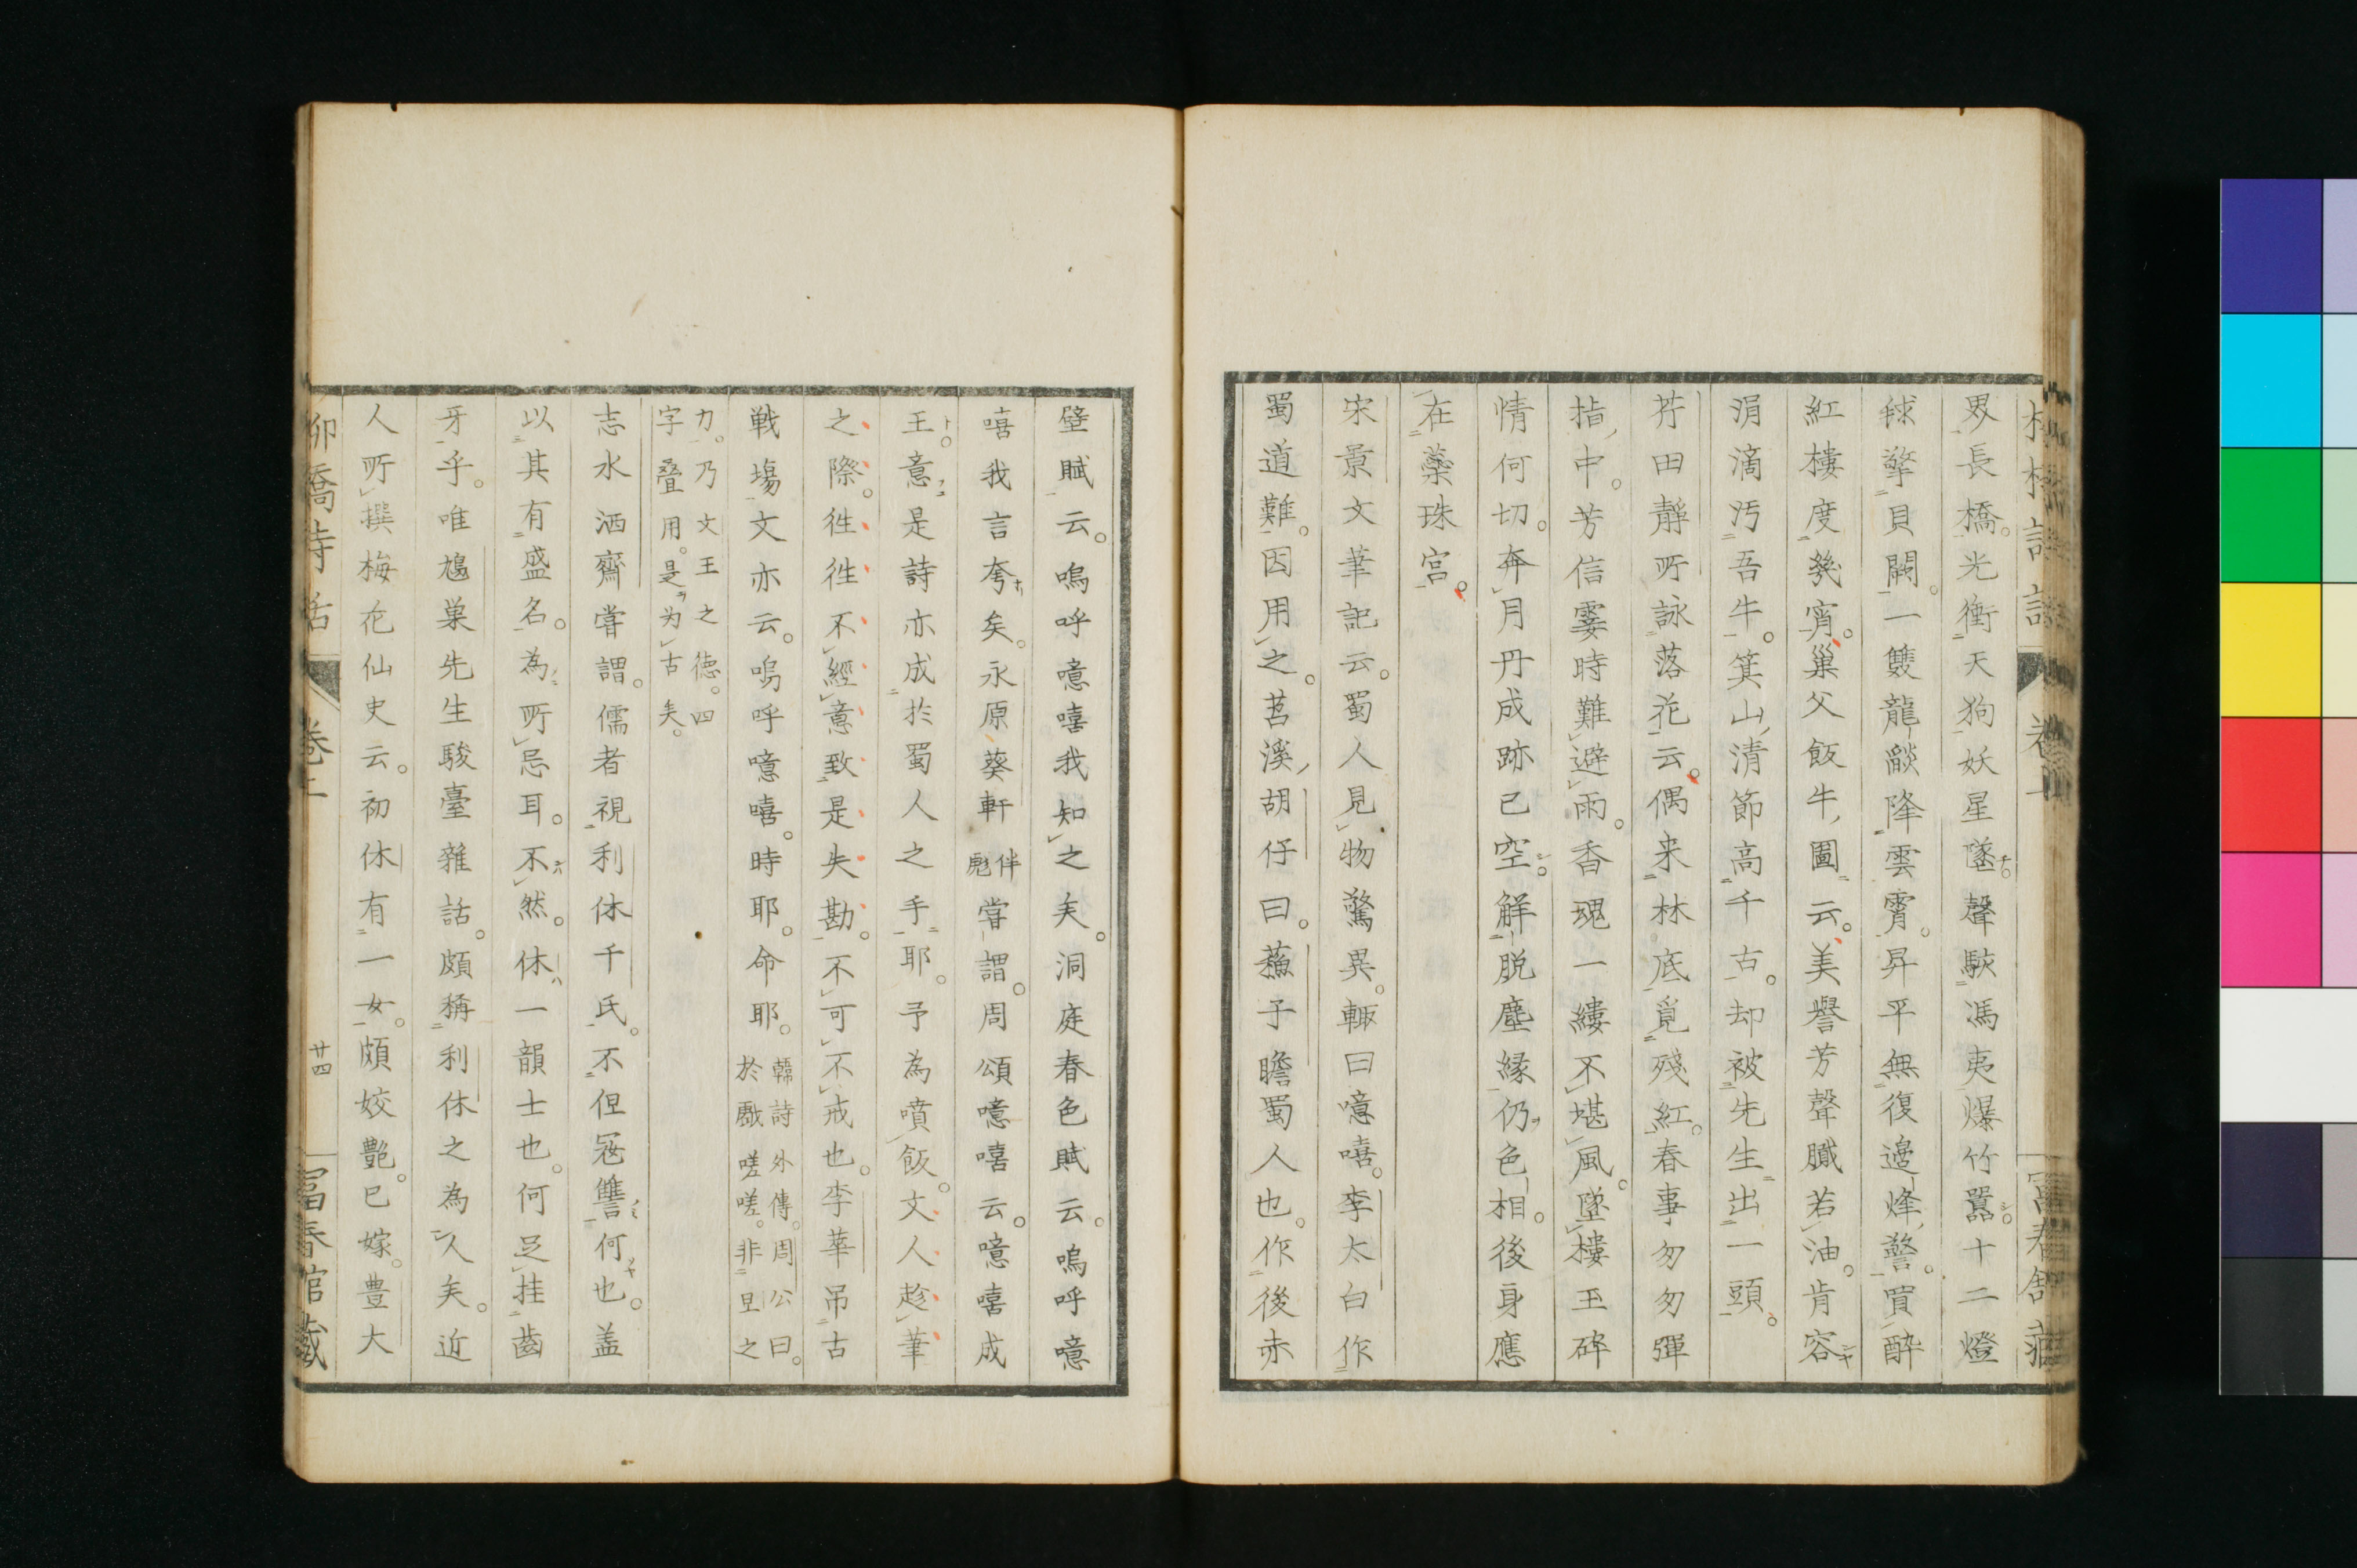 界長橋。光衝天狗妖星墜。聲駭馮夷爆竹囂。十二燈
毬擎貝闕。一雙龍燄降雲霄。昇平無復邊烽警。買醉
紅樓度幾宵。巢父飯牛圖云。美譽芳聲臟若油。肯容
涓滴汚吾牛。箕山清節高千古。却被先生出一頭。
芥田靜所詠落花云。偶来林底覓殘紅。春事匆匆彈
指中。芳信霎時難避雨。香魂一縷不堪風。墜樓玉碎
情何切。奔月丹成跡已空。解脱塵縁仍色相。後身應
在蘂珠宮。
宋景文筆記云。蜀人見物驚異。輙曰噫嘻。李太白作
蜀道難。因用之。苕溪胡仔曰。蘓子瞻蜀人也。作後赤
壁賦云。嗚呼噫嘻我知之矣。洞庭春色賦云。嗚呼噫
嘻我言夸矣。永原葵軒
伴
彪
嘗謂。周頌噫嘻云。噫嘻成
王。意是詩亦成於蜀人之手耶。予為噴飯。文人趁筆
之際。徃徃不經意致是失勘。不可不戒也。李華吊古
戦塲文亦云。嗚呼噫嘻。時耶。命耶。
韓詩外傳。周公曰。
於戲嗟嗟。非旦之
力。乃文王之徳。四
字疊用。是为古矣。
志水洒齋嘗謂。儒者視利休千氏。不但冦讐何也。盖
以其有盛名。為所忌耳。不然。休一韻士也。何足挂齒
牙乎。唯鳩巣先生駿臺雜話。頗稱利休之為人矣。近
人所撰梅花仙史云。初休有一女。頗姣艷。已嫁。豊大
柳橋詩話
卷上
廿四
冨春館藏